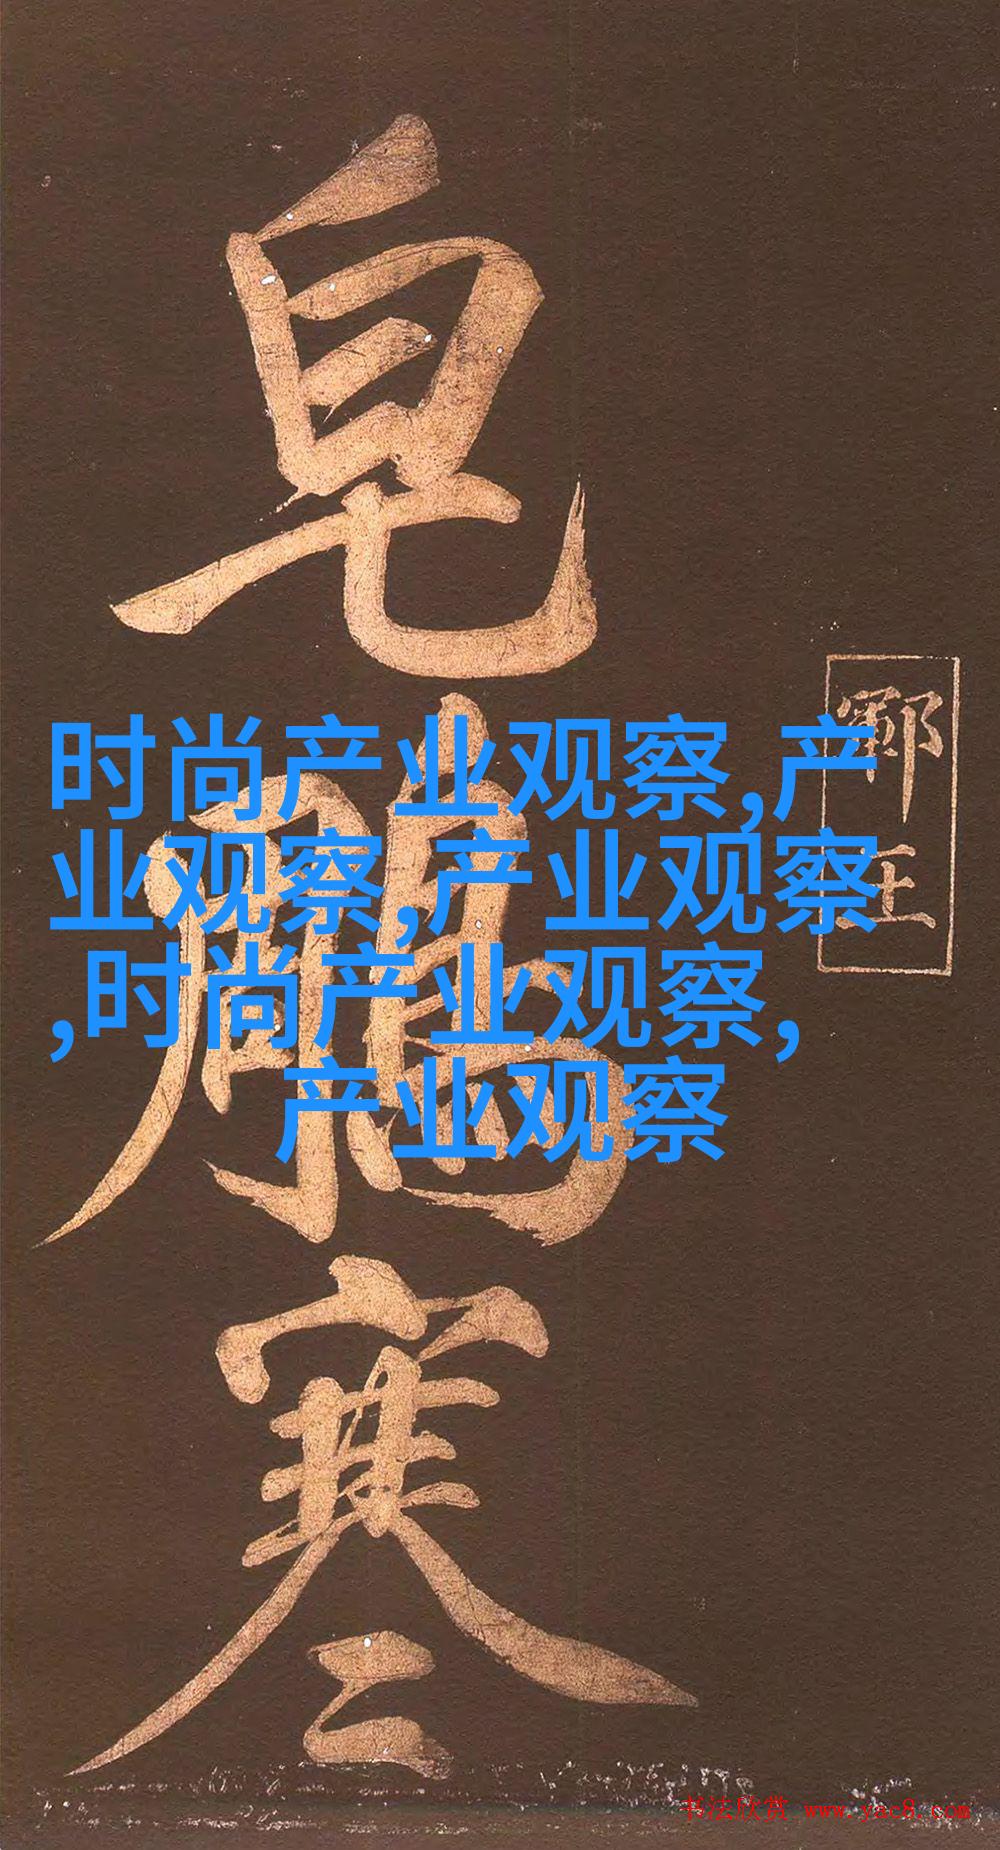 时尚产业观察,产
业观察,产业观察
,时尚产业观察,
产业观察
皂鵰寒
书法欣赏 www.yac8.com